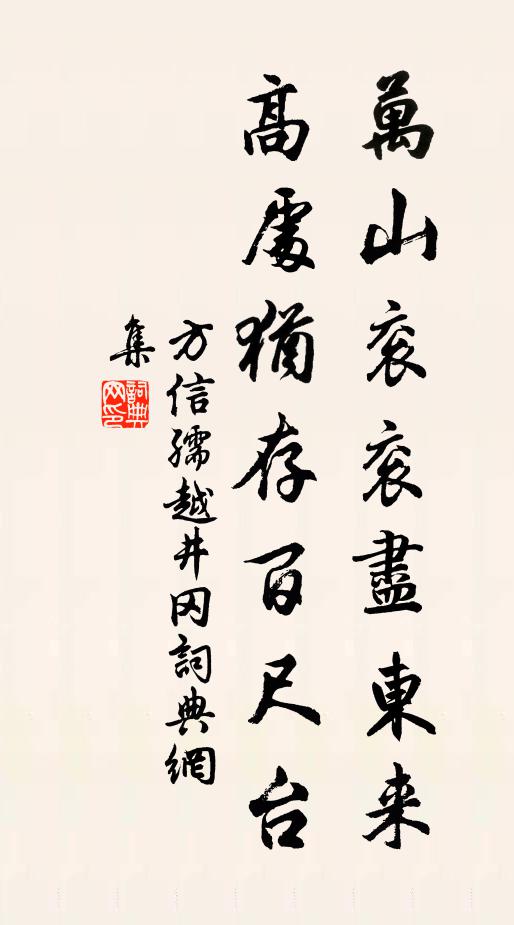 萬山衮衮盡東来
高處猶存百尺台
方信孺越井冈詞典網
集
詞典网印